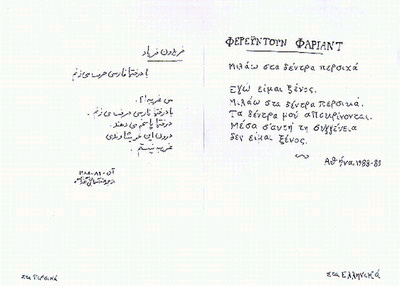 فریدون فریاد
با درختها فارسی حرف می زنم
من غریبه ام.
با درختها فارسی حرف می زنم.
درختها پاسخم می دهند.
درون این خویشاوندی
غریب نیستم.
στα Περσικά
ΦΕΡΕΡΝΤΟΥΝ ΦΑΡΙΑΝΤ
Μιλάω στα δέντρα περσικά
Εγώ είμαι ξένος.
Μιλάω στα δέντρα περσικά.
Τα δέντρα μού απεκρίνονται.
Μέσα σ'αυτή τη συγγένεια
δεν είμαι ξένος.
Αθήνα, 1988-89
στα Ελληνικά